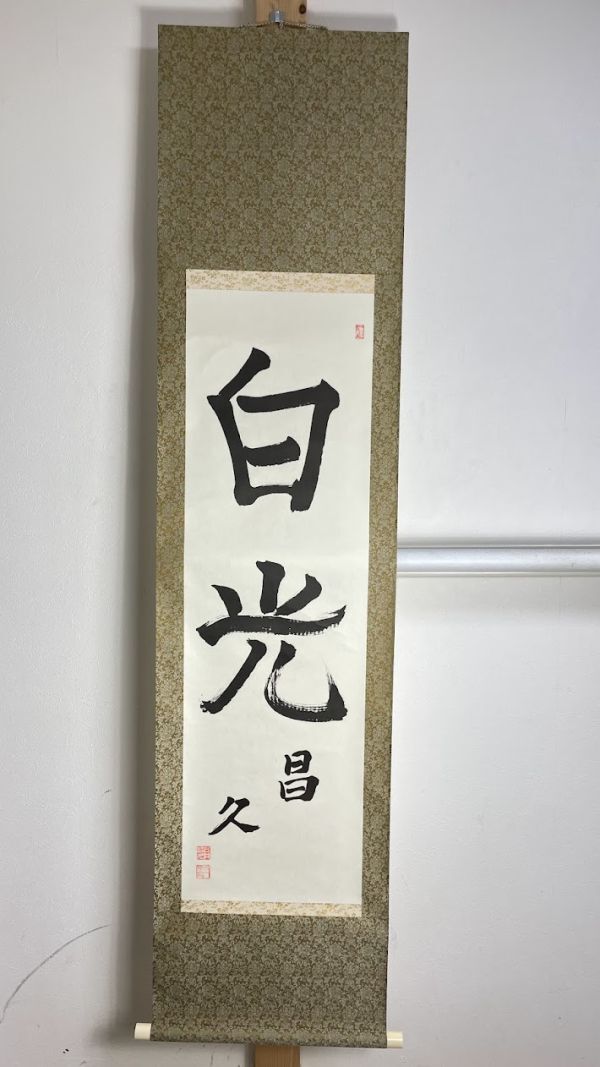 白光
昌久